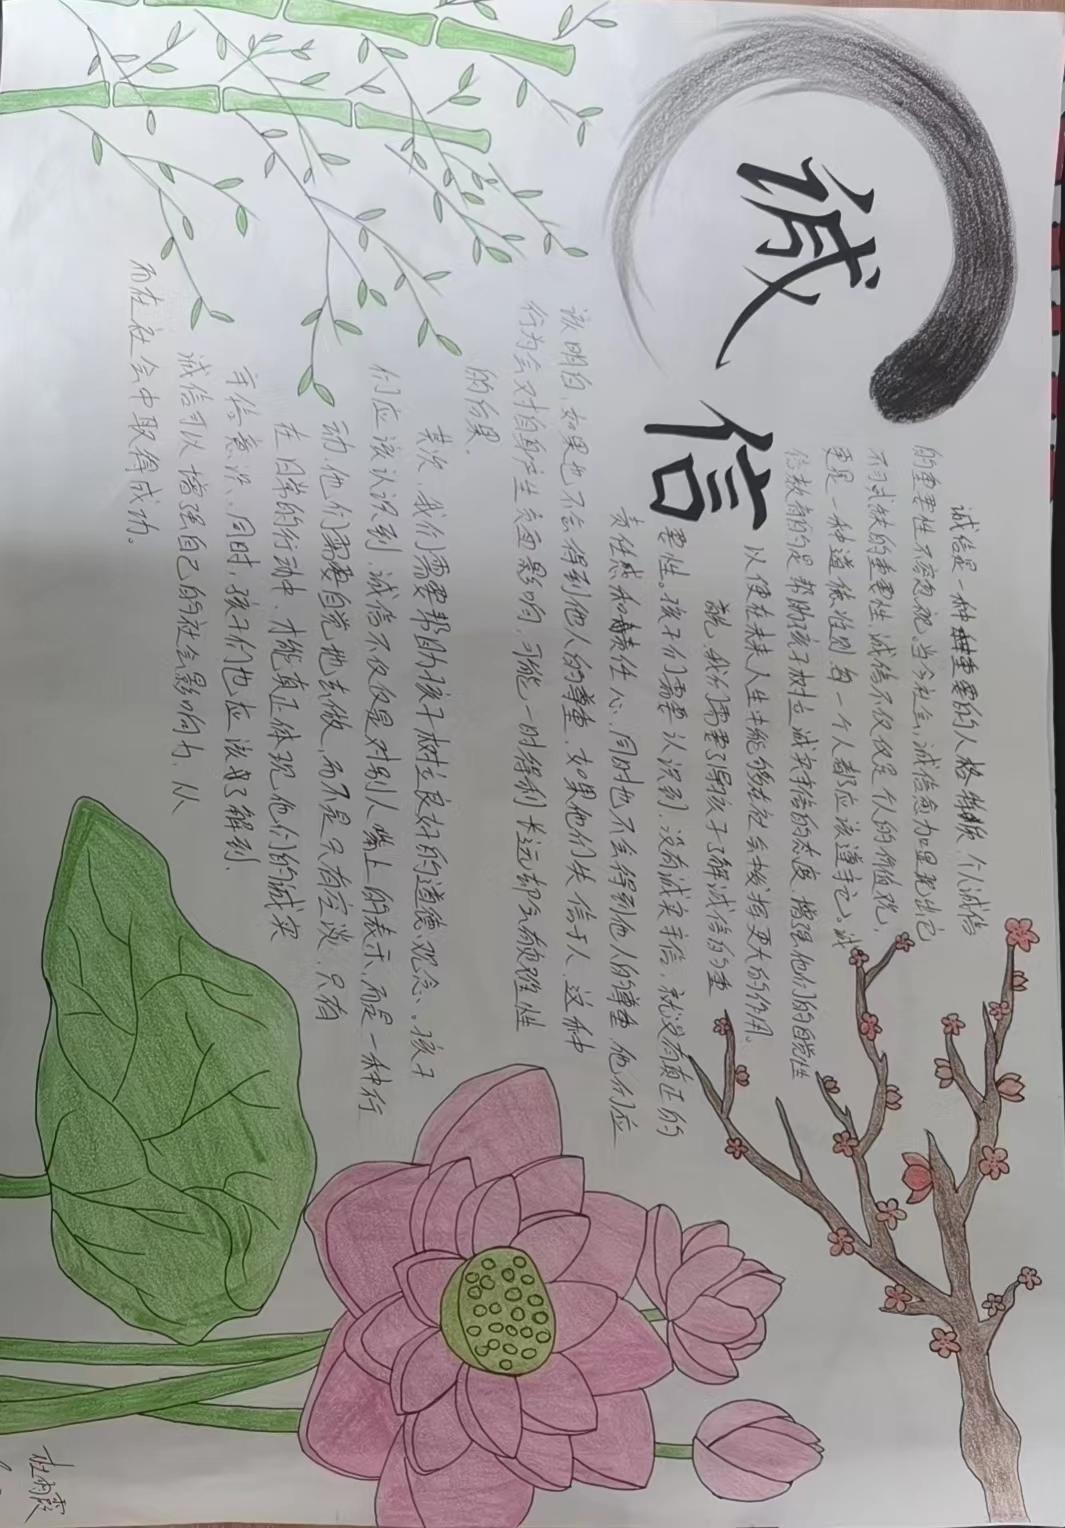 诚信
诚信是一种重要的人格特质 个人诚信
的重要性不容忽视,当今社会,诚信愈加显现出它
不可或缺的重要性 诚信不仅仅是个人的价值观,
更是一种道德准则 每一个人都应该遵守它。诚
信教育的是帮助孩子树立诚实守信的态度 增强他们的自觉性
以便在未来人生中能够在社会发挥更大的作用。
首先,我们需要引导孩子了解诚信的重
要性。孩子们需要认识到,没有诚实守信,就没有真正的
责任感和责任心,同时也不会得到他人的尊重,他们应
该明白,如果也不会得到他人的尊重,如果他们失信于人,这种
行为会对自身产生负面影响,可能一时得利,长远却会有毁灭性
的结果。
其次,我们需要帮助孩子树立良好的道德观念、孩子
们应该认识到,诚信不仅仅是对别人嘴上的表示,而是一种行
动,他们需要自觉地去做,而不是只有空谈,只有
在日常的行动中,才能真正体现他们的诚实
守信意识、同时,孩子们也应该了解到,
诚信可以增强自己的社会影响力,从
而在社会中取得成功。
杜雨霞